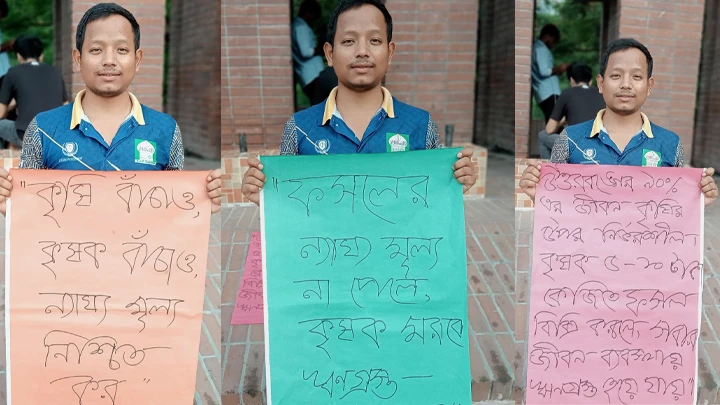 "কৃষি বাঁচাও,
কৃষক বাঁচাও,
ন্যায্য মূল্য
নিশ্চিত
কর"
"ফসলের
ন্যায্য মূল্য
না পেলে,
কৃষক মরবে
ঋণগ্রস্ত —
উত্তরবঙ্গের ৯০%
এর জীবন কৃষির
উপর নির্ভরশীল।
কৃষক ৫-১০ টাকা
কেজিতে ফসল
বিক্রি করলে,
জীবন-ব্যবস্থায়
ঋণগ্রস্ত হয়ে যায়"